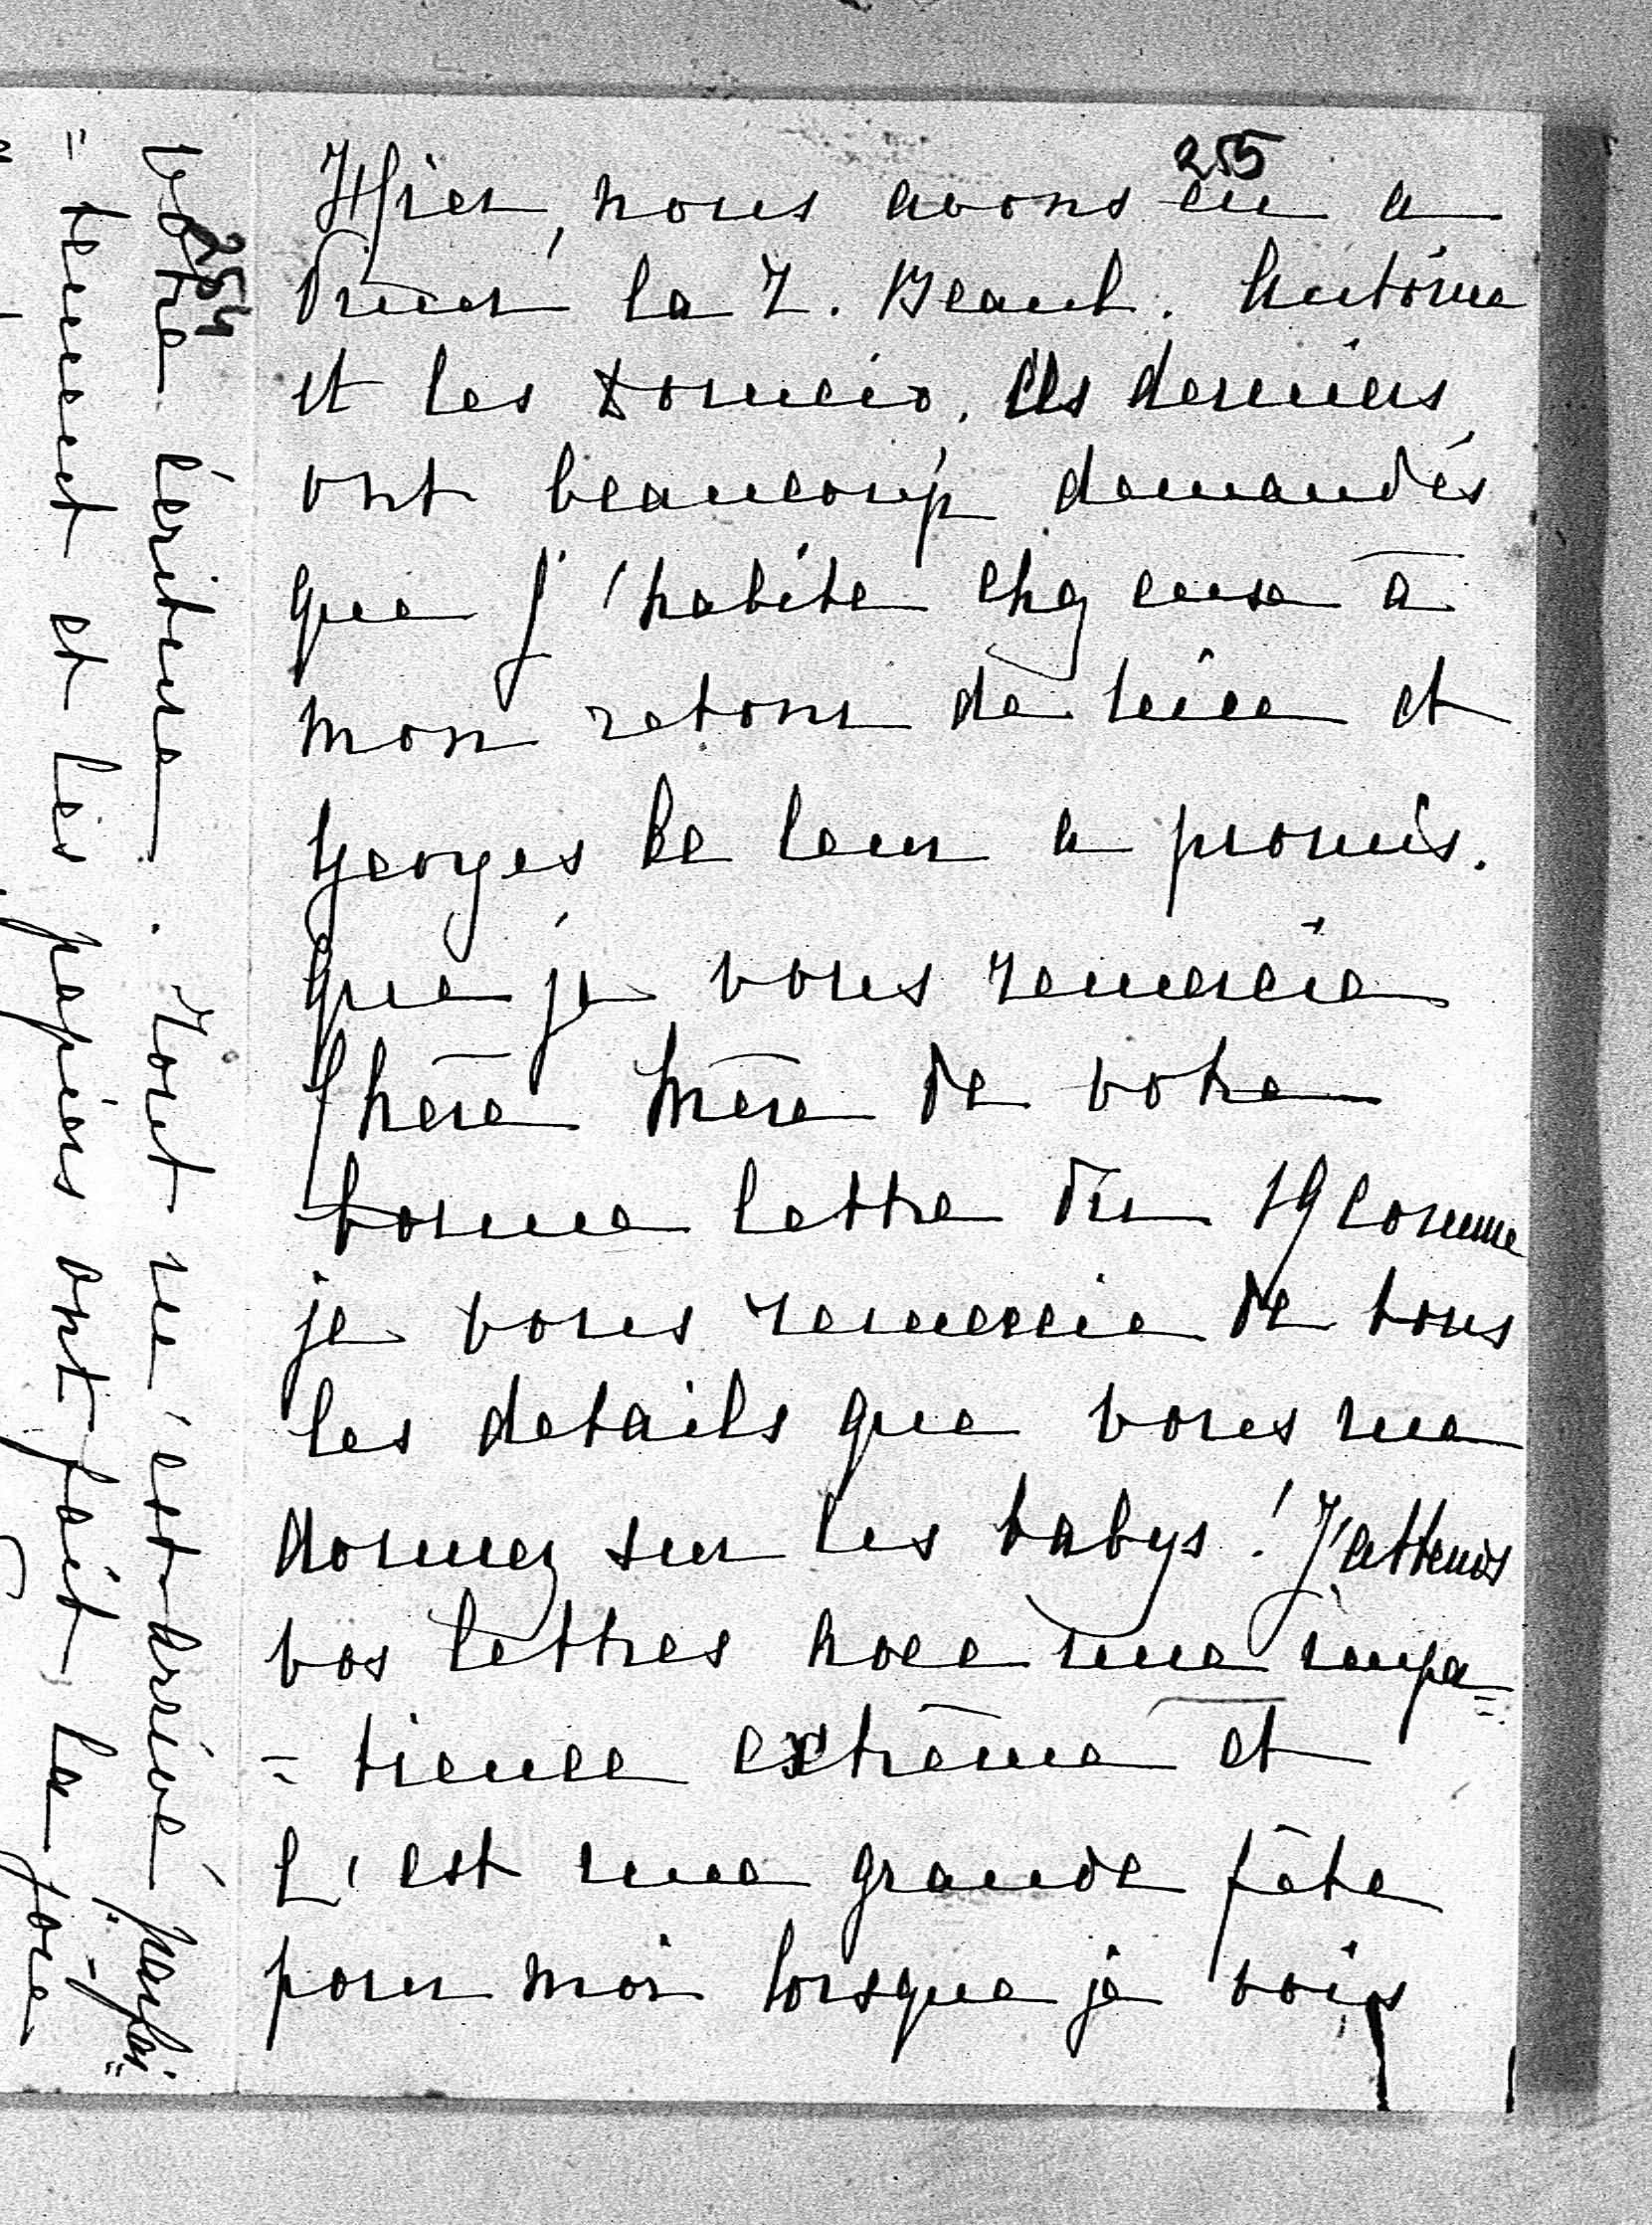 254
votre écriture. Tout m'est arrivé parfai=
=tement et les papiers ont fait la joie
255
Hier, nous avons eu a
diner la Z. Beauh. Antoine
et les Ces derniers
ont beaucoup demandés
que j'habite chez eux à
mon retour de et
Georges le leur a promis.
Que je vous remercie
Chère Mère de votre
bonne lettre du 19 Comme
je vous remercie de tous
les details que vous me
donnez sur les babys! J'attends
vos lettres avec une impa=
=tience extrême et
C'est une grande fête
pour moi lorsque je vois